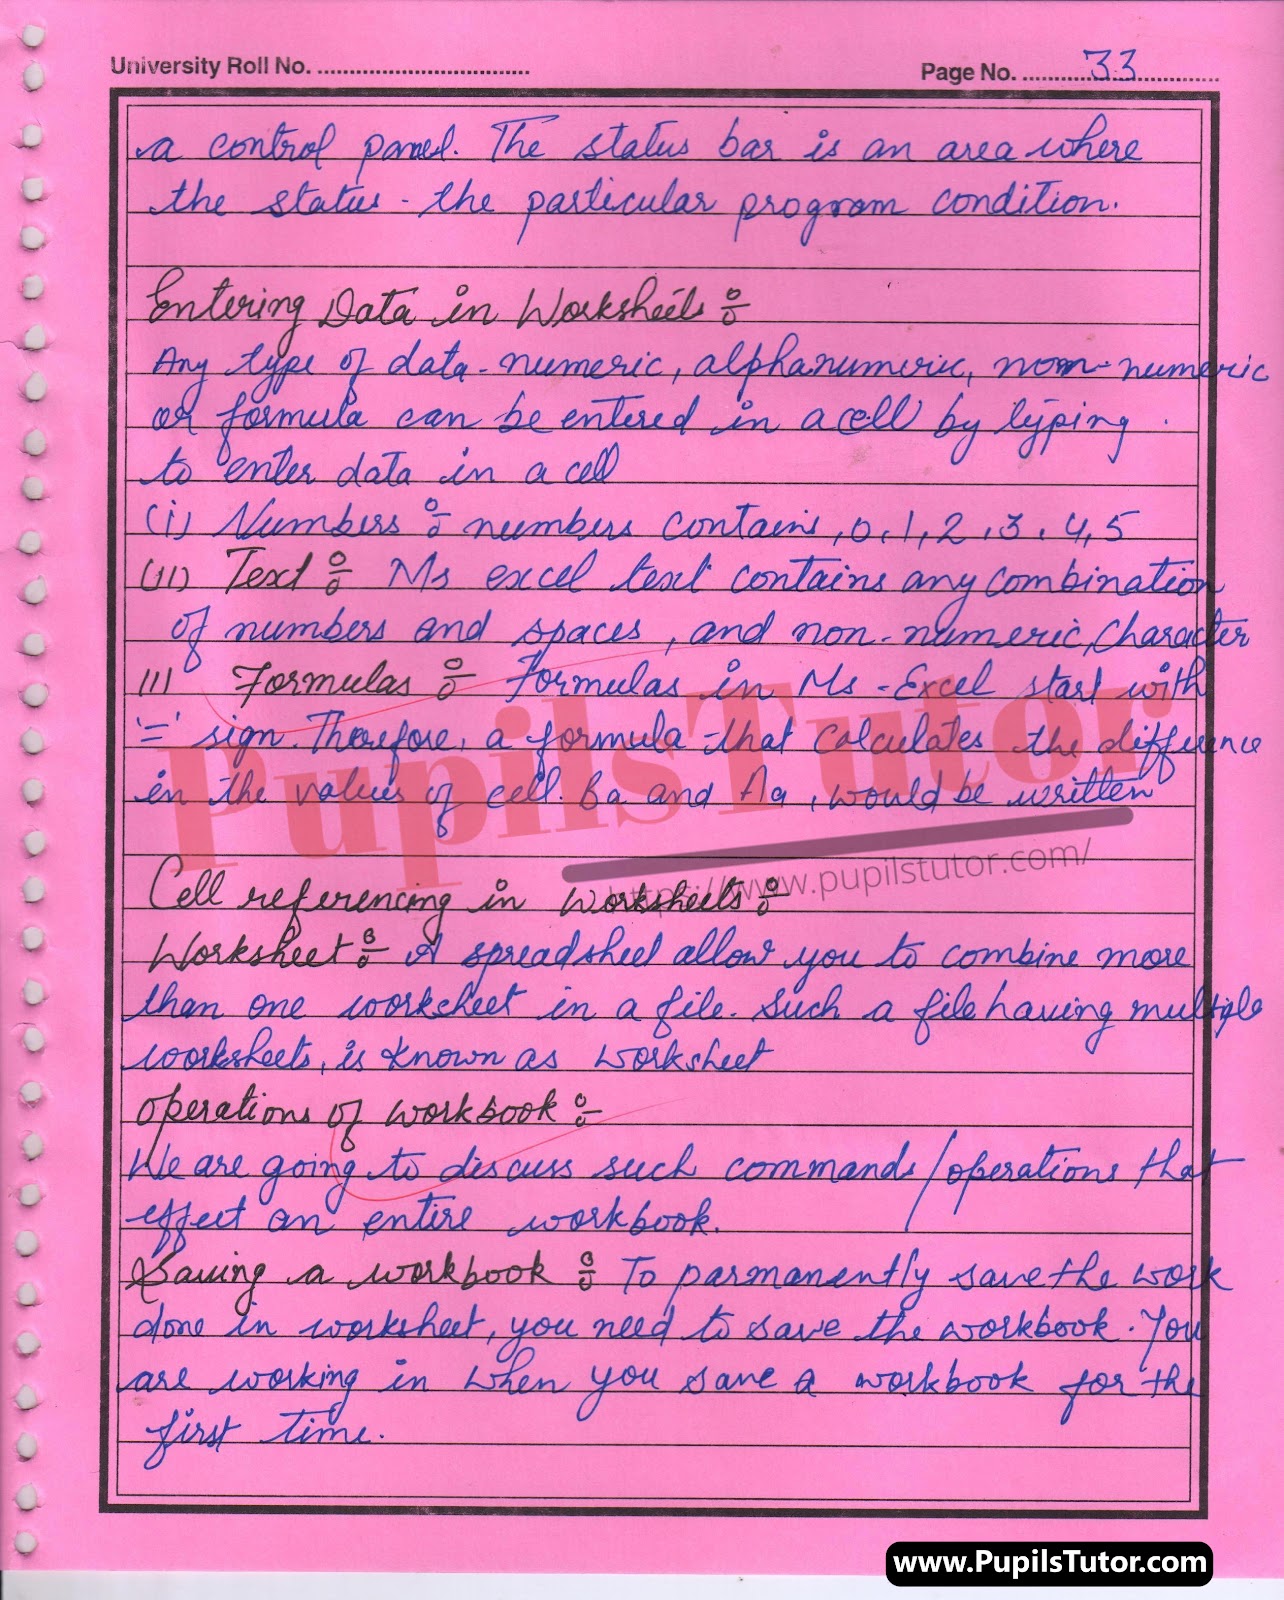 University Roll No. ..................................
Page No. ............33................
a control panel. The status bar is an area where
the status - the particular program condition.
Entering Data in Worksheets :-
Any type of data - numeric, alphanumeric, non-numeric
or formula can be entered in a cell by typing.
to enter data in a cell
(i) Numbers :- numbers contains, 0, 1, 2, 3, 4, 5
(ii) Text :- Ms excel text contains any combination
of numbers and spaces, and non-numeric, Character
iii Formulas :- Formulas in Ms-Excel start with
'=' sign. Therefore, a formula that calculates the difference
in the values of cell. Ba and Aa, would be written
PupilsTutor
https://www.pupilstutor.com/
Cell referencing in Worksheets :-
Worksheet :- A spreadsheet allow you to combine more
than one worksheet in a file. Such a file having multiple
worksheets, is known as worksheet
Operations of workbook :-
We are going to discuss such commands/operations that
effect an entire workbook.
Saving a workbook :- To parmanently save the work
done in worksheet, you need to save the workbook. You
are working in when you save a workbook for the
first time.
www.PupilsTutor.com